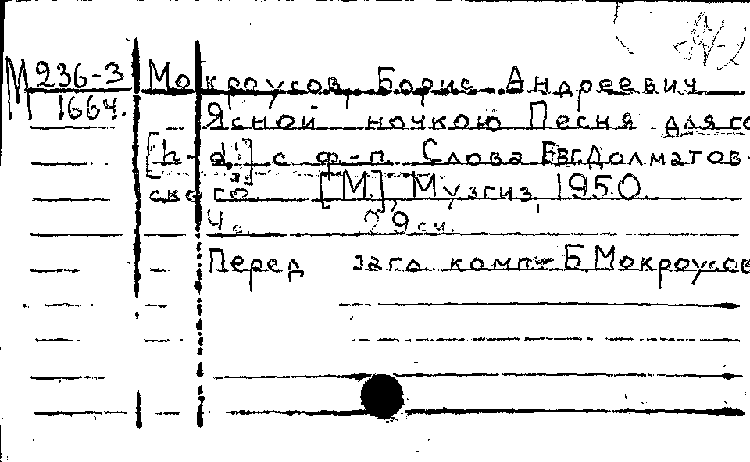 М 236-3 Мокроусов, Борис Андреевич
1664. Ясной ночкою Песня для го
[h-d] с ф-п. Слова Евг.Долматов-
ского [М.], Музгиз, 1950
4с. 29см.
Перед загл комп. Б Мокроусов